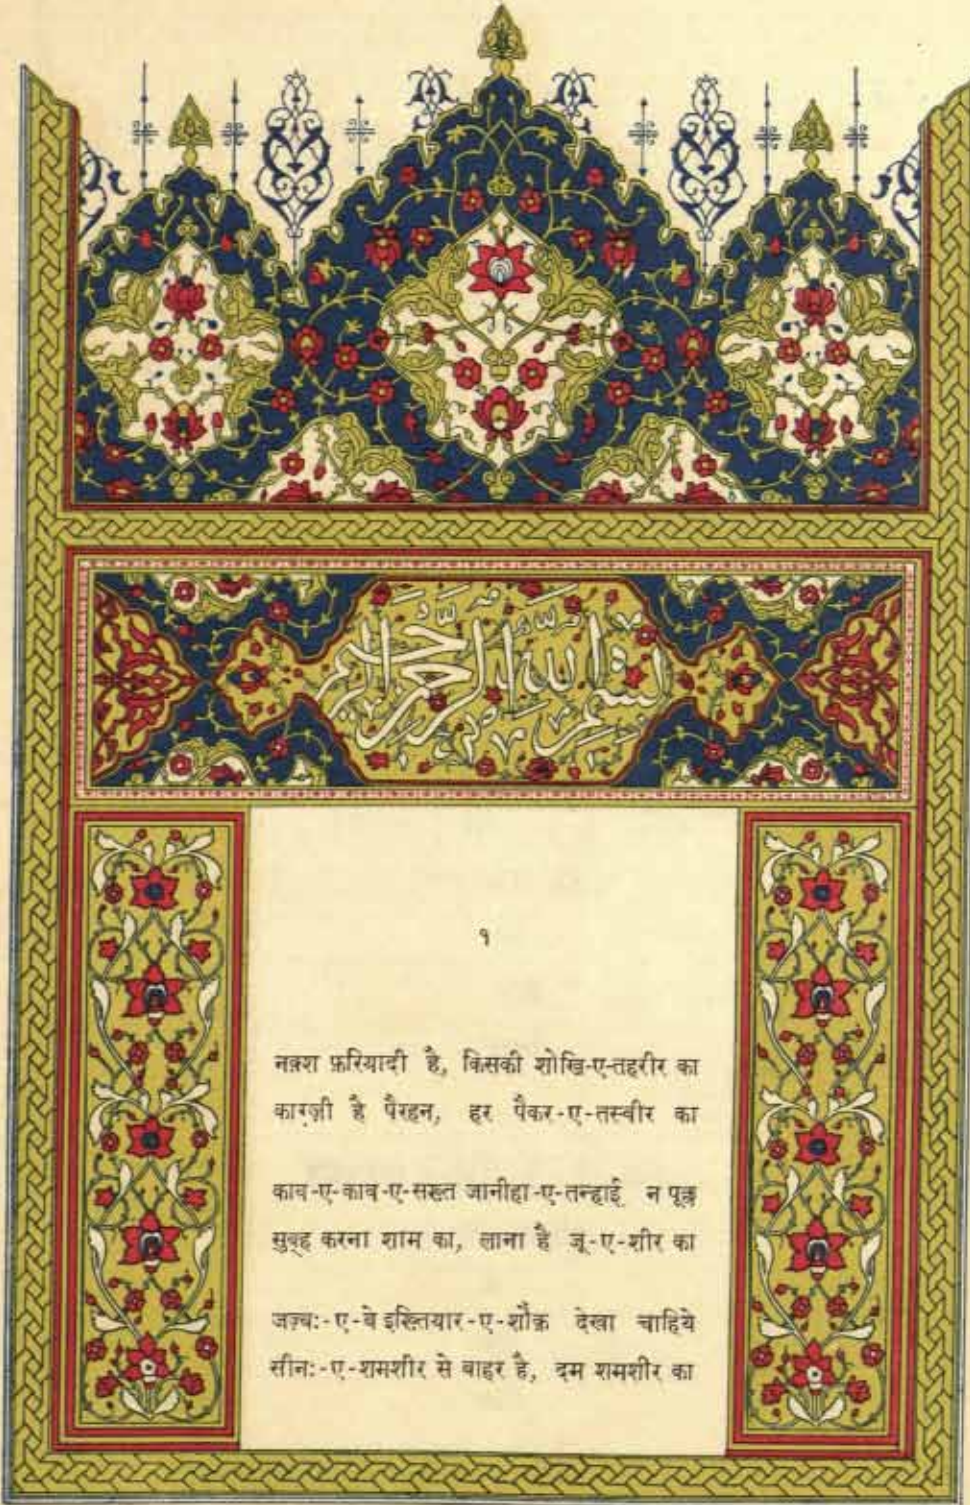 بسم الله الرحمن الرحيم
१
नक़्श फ़रियादी है, किसकी शोख़ि-ए-तहरीर का
काग़ज़ी है पैरहन, हर पैकर-ए-तस्वीर का
काव-ए-काव-ए-सख़्त जानीहा-ए-तन्हाई न पूछ
सुब्ह करना शाम का, लाना है जू-ए-शीर का
जज़्बः-ए-बे इख़्तियार-ए-शौक़ देखा चाहिये
सीनः-ए-शमशीर से बाहर है, दम शमशीर का